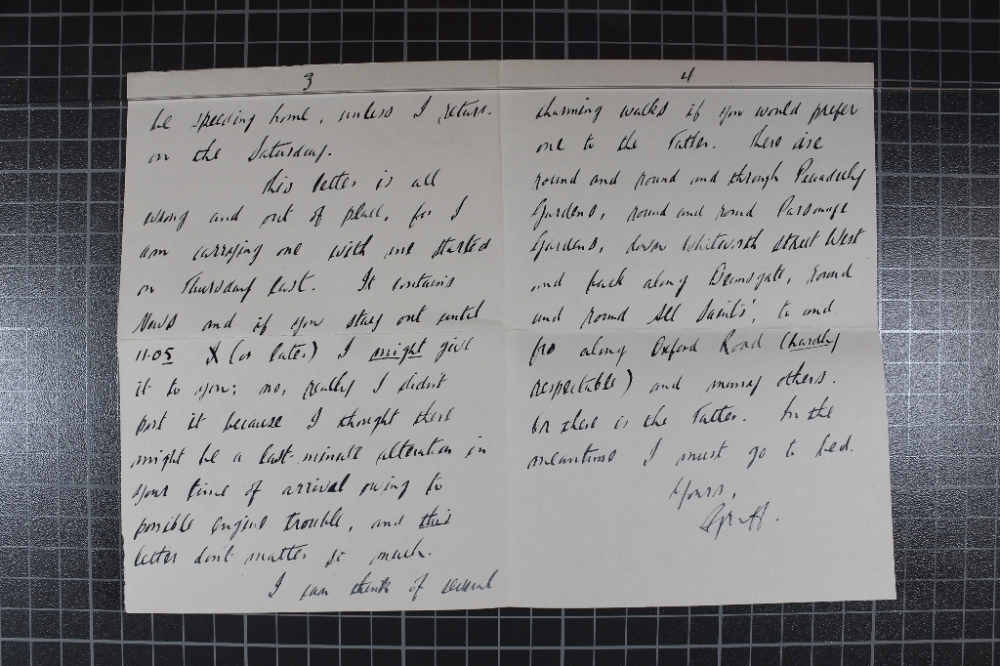 3
be speeding home, unless I return
on the Saturday.
This letter is all
wrong and out of place, for I
am carrying one with me started
on Thursday last. It contains
News and if you stay out until
11.05 X (or later) I might give
it to you; no, really I didn't
post it because I thought there
might be a last-minute alteration in
your time of arrival owing to
possible engine trouble, and this
letter don't matter so much.
I can think of several
4
charming walks if you would prefer
one to the Tatler. There are
round and round and through Piccadilly
Gardens, round and round Parsonage
Gardens, down Whitworth Street West
and back along Deansgate, round
and round All Saints', to and
fro along Oxford Road (hardly
respectable) and many others.
Or there is the Tatler. In the
meantime I must go to bed.
Yours,